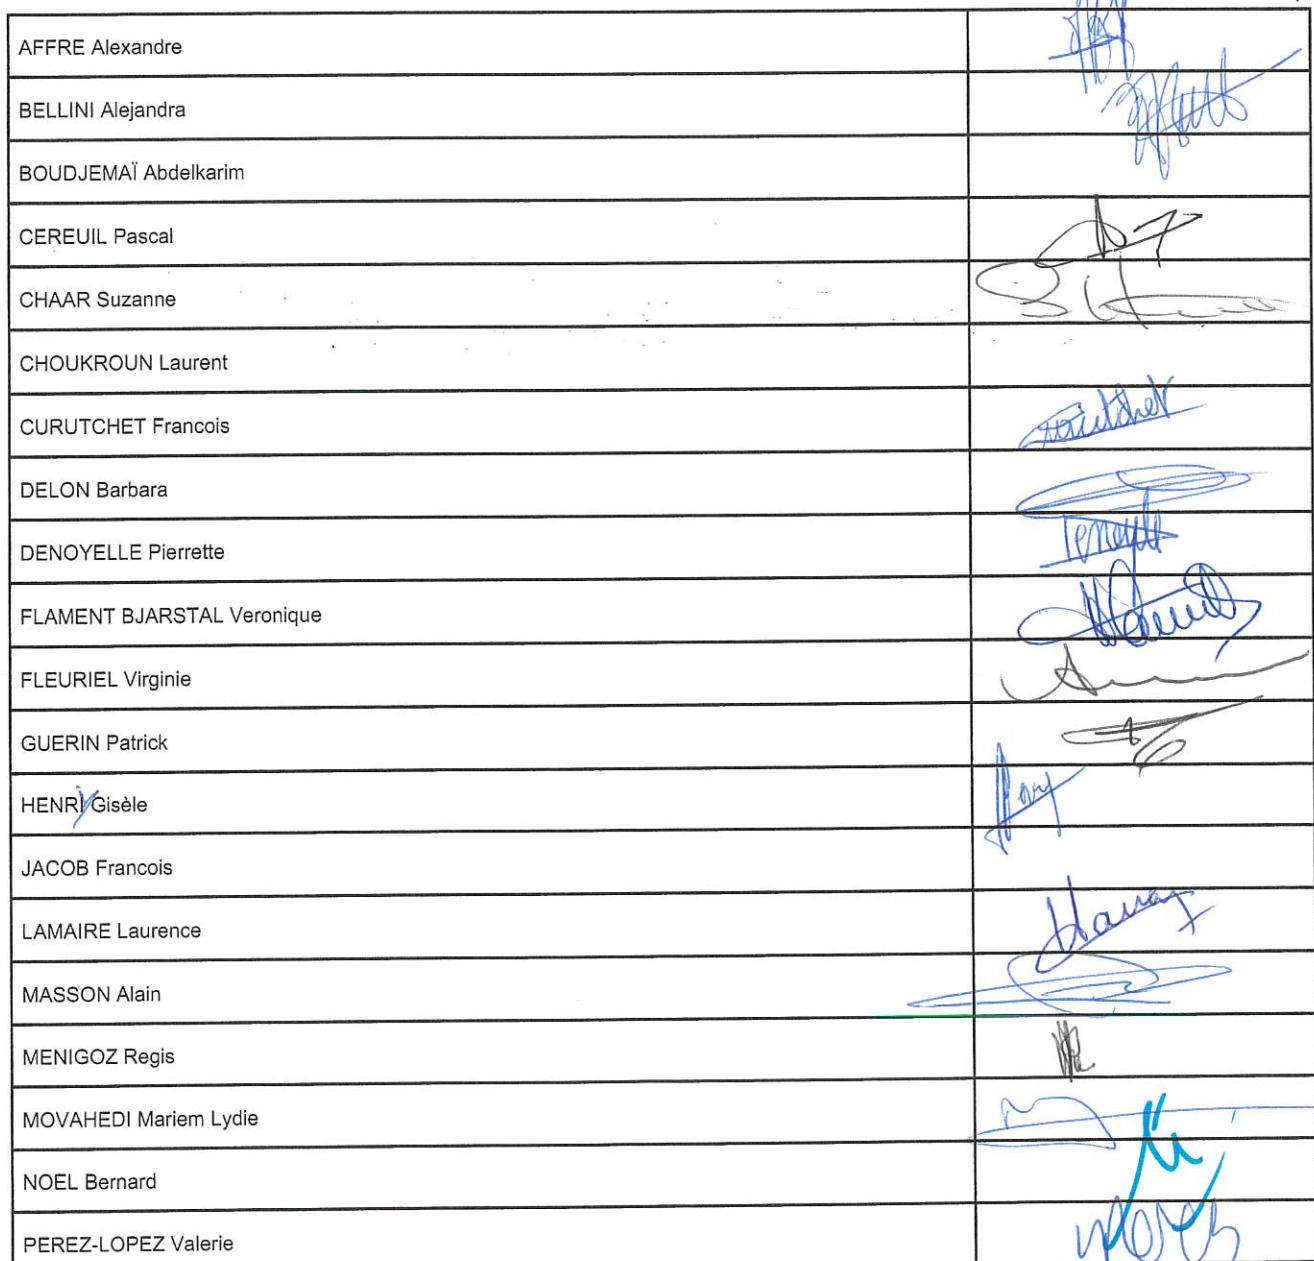 AFFRE Alexandre
BELLINI Alejandra
BOUDJEMAÏ Abdelkarim
CEREUIL Pascal
CHAAR Suzanne
CHOUKROUN Laurent
CURUTCHET Francois
DELON Barbara
DENOYELLE Pierrette
FLAMENT BJARSTAL Veronique
FLEURIEL Virginie
GUERIN Patrick
HENRY Gisèle
JACOB Francois
LAMAIRE Laurence
MASSON Alain
MENIGOZ Regis
MOVAHEDI Mariem Lydie
NOEL Bernard
PEREZ-LOPEZ Valerie